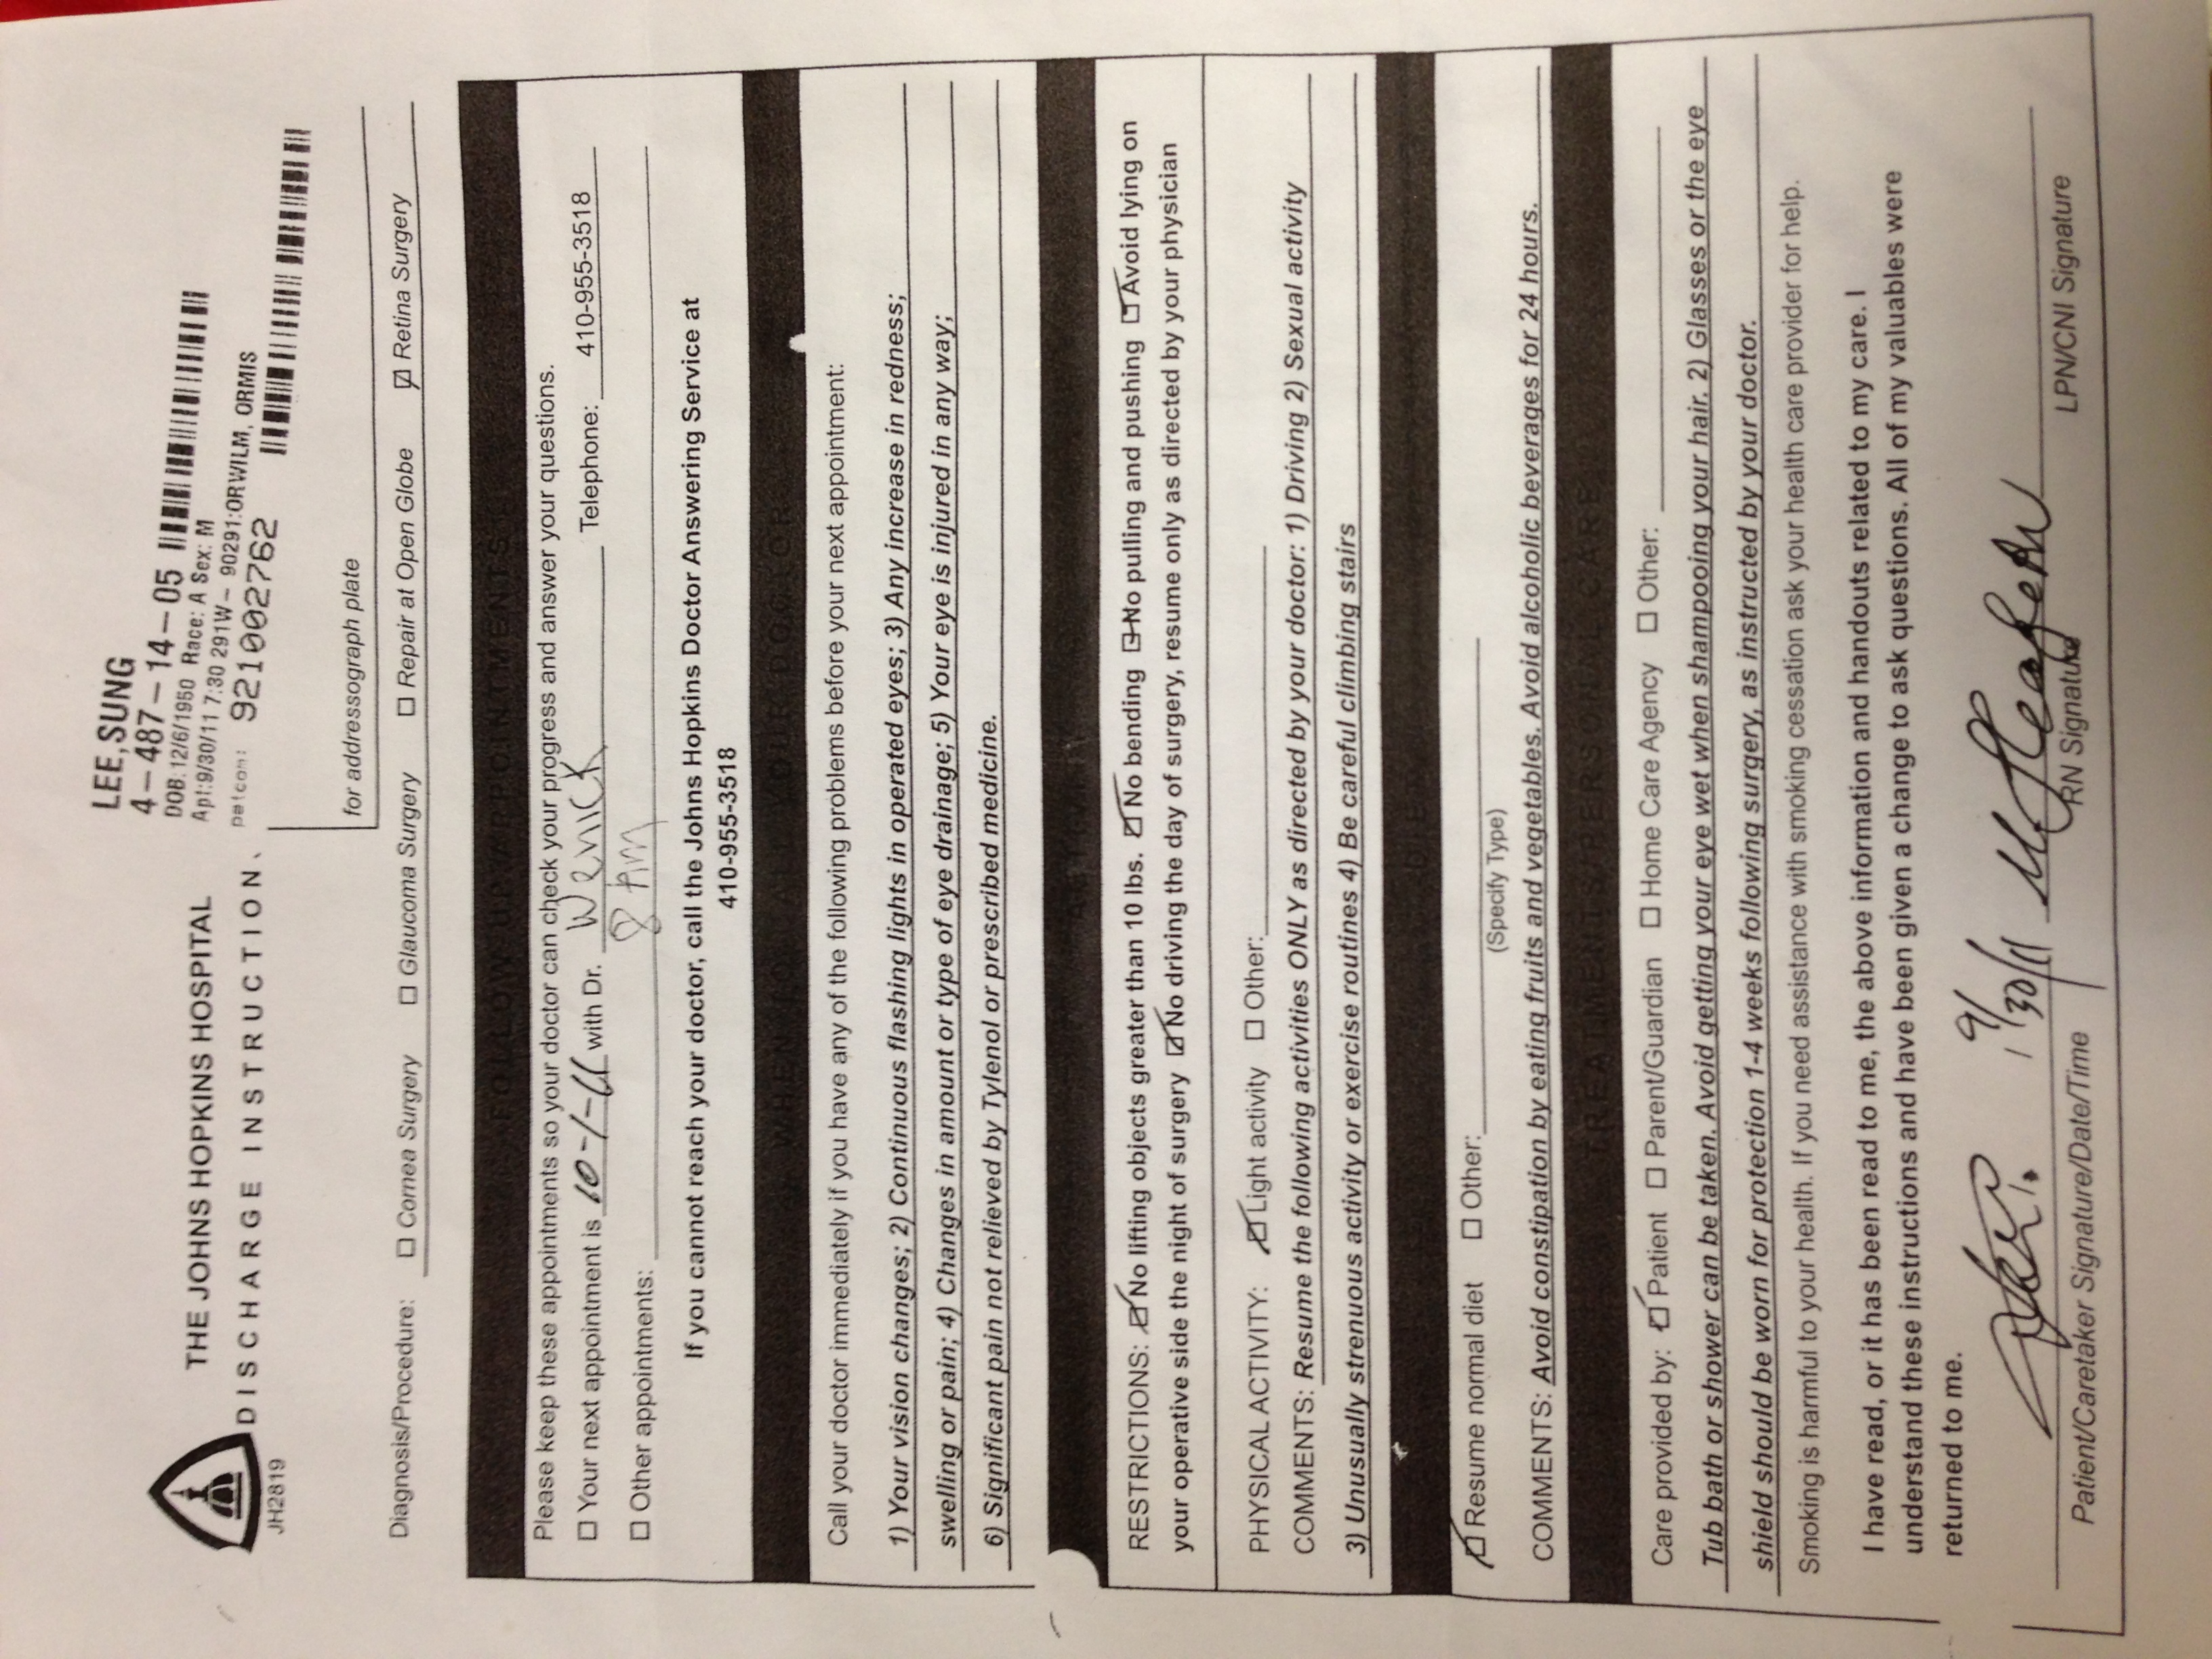 LEE,SUNG
4-487-14-05
DOB: 12/6/1950 Race: A Sex: M
Apt:9/30/11 7:30 291W- 90291:ORWILM, ORMIS
patcom: 921002762
THE JOHNS HOPKINS HOSPITAL
DISCHARGE INSTRUCTION.
JH2819
for addressograph plate
Diagnosis/Procedure: ☐ Cornea Surgery ☐ Glaucoma Surgery ☐ Repair at Open Globe ☑ Retina Surgery
FOLLOW UP APPOINTMENTS
Please keep these appointments so your doctor can check your progress and answer your questions.
☐ Your next appointment is 10-1-11 with Dr. Wenick Telephone: 410-955-3518
☐ Other appointments: 8 Am
If you cannot reach your doctor, call the Johns Hopkins Doctor Answering Service at
410-955-3518
WHEN TO CALL YOUR DOCTOR
Call your doctor immediately if you have any of the following problems before your next appointment:
1) Your vision changes; 2) Continuous flashing lights in operated eyes; 3) Any increase in redness;
swelling or pain; 4) Changes in amount or type of eye drainage; 5) Your eye is injured in any way;
6) Significant pain not relieved by Tylenol or prescribed medicine.
ACTIVITY
RESTRICTIONS: ☑ No lifting objects greater than 10 lbs. ☑ No bending ☑ No pulling and pushing ☑ Avoid lying on
your operative side the night of surgery ☑ No driving the day of surgery, resume only as directed by your physician
PHYSICAL ACTIVITY: ☑ Light activity ☐ Other:
COMMENTS: Resume the following activities ONLY as directed by your doctor: 1) Driving 2) Sexual activity
3) Unusually strenuous activity or exercise routines 4) Be careful climbing stairs
DIET
☑ Resume normal diet ☐ Other:
(Specify Type)
COMMENTS: Avoid constipation by eating fruits and vegetables. Avoid alcoholic beverages for 24 hours.
TREATMENTS/PERSONAL CARE
Care provided by: ☑ Patient ☐ Parent/Guardian ☐ Home Care Agency ☐ Other:
Tub bath or shower can be taken. Avoid getting your eye wet when shampooing your hair. 2) Glasses or the eye
shield should be worn for protection 1-4 weeks following surgery, as instructed by your doctor.
Smoking is harmful to your health. If you need assistance with smoking cessation ask your health care provider for help.
I have read, or it has been read to me, the above information and handouts related to my care. I
understand these instructions and have been given a change to ask questions. All of my valuables were
returned to me.
9/30/11
Patient/Caretaker Signature/Date/Time RN Signature LPN/CNI Signature